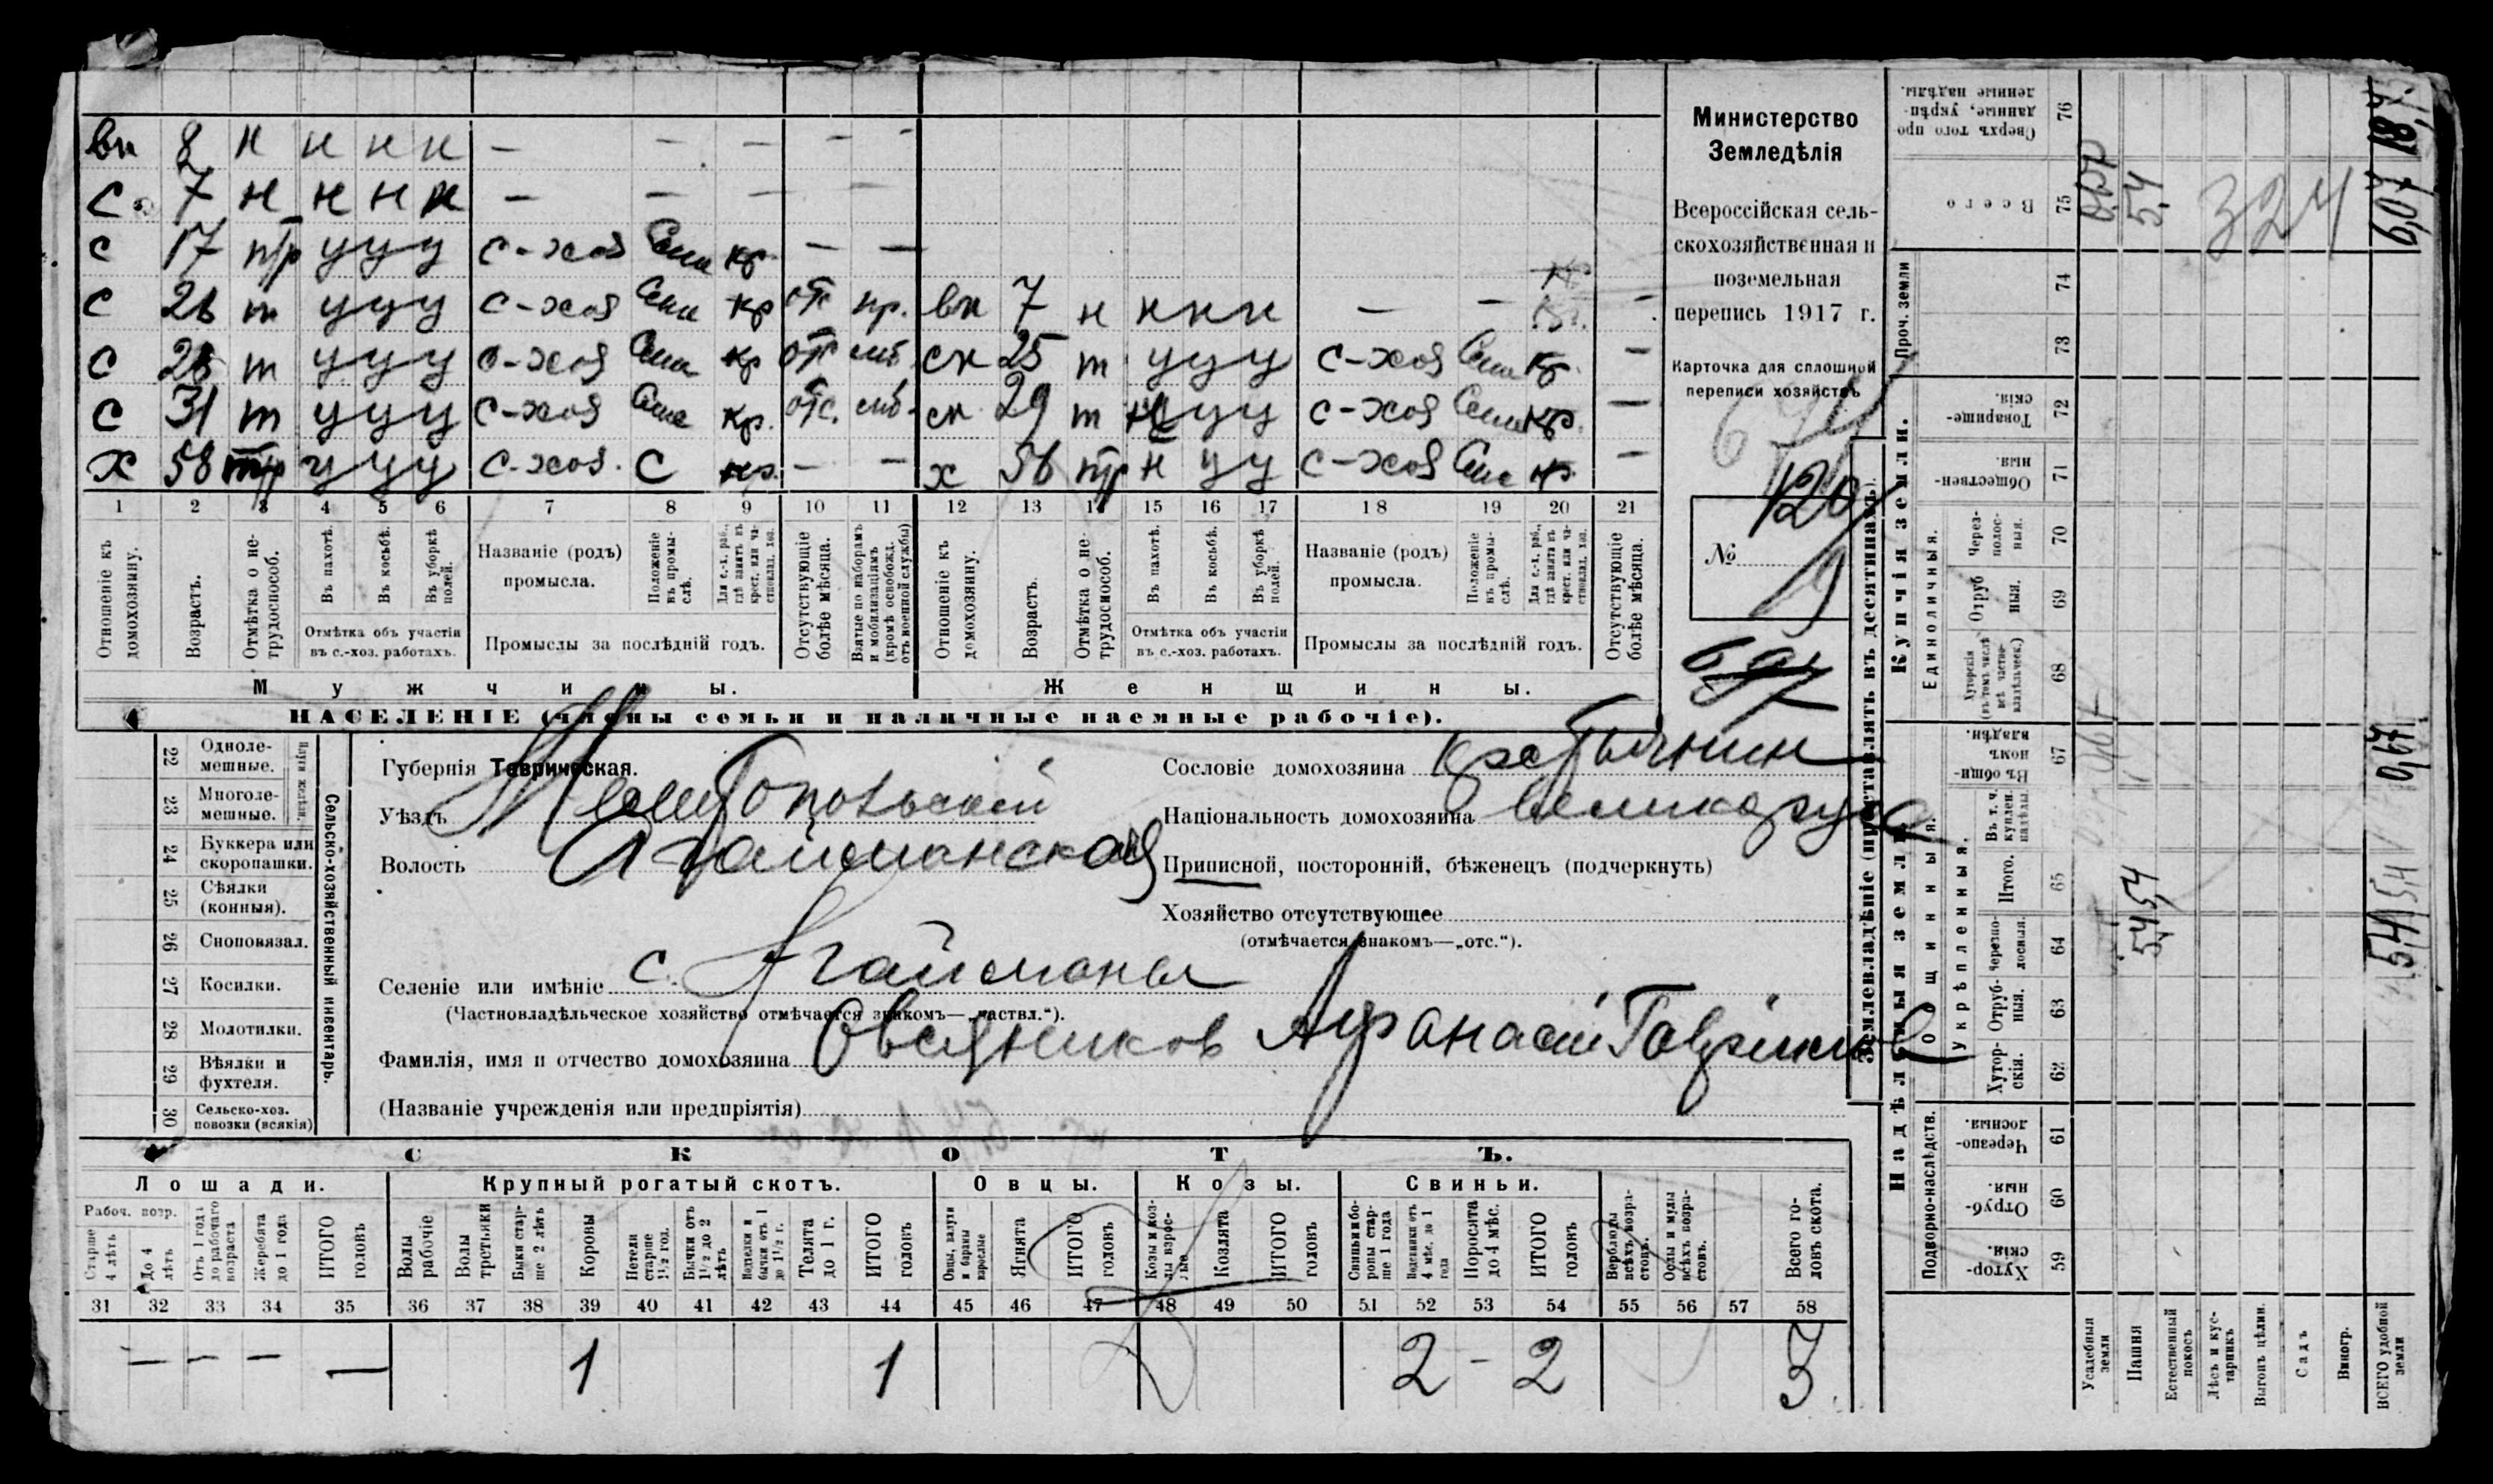 вн 8 н н н н – – – – –
с 7 н н н н – – – –
с 17 п/р у у у с-хоз Сем кр. – –
с 26 т у у у с-хоз Сем кр отс пр. вн 7 н н н н – – –
с 28 т у у у с-хоз Сем кр отс мб сн 25 т у у у с-хоз Сем кр. –
с 31 т у у у с-хоз Сем кр. отс. мб. сн 29 т у у у с-хоз Сем кр. –
х 58 п/р у у у с-хоз. С кр. – – х 56 п/р н у у с-хоз Сем кр. –
1 2 3 4 5 6 7 8 9 10 11 12 13 14 15 16 17 18 19 20 21
Отношеніе къ домохозяину.
Возрастъ.
Отмѣтка о нетрудоспособ.
Въ пахотѣ.
Въ косьбѣ.
Въ уборкѣ полей.
Отмѣтка объ участіи въ с.-хоз. работахъ.
Названіе (родъ) промысла.
Положеніе въ промыслѣ.
Для с.-х. раб., гдѣ занятъ въ крест. или частновлад. хоз.
Промыслы за послѣдній годъ.
Отсутствующіе болѣе мѣсяца.
Взятые по наборамъ и мобилизаціямъ (кромѣ освобожд. отъ военной службы)
Отношеніе къ домохозяину.
Возрастъ.
Отмѣтка о нетрудоспособ.
Въ пахотѣ.
Въ косьбѣ.
Въ уборкѣ полей.
Отмѣтка объ участіи въ с.-хоз. работахъ.
Названіе (родъ) промысла.
Положеніе въ промыслѣ.
Для с.-х. раб., гдѣ занята въ крест. или частновлад. хоз.
Промыслы за послѣдній годъ.
Отсутствующіе болѣе мѣсяца.
Мужчины. Женщины.
НАСЕЛЕНІЕ (члены семьи и наличные наемные рабочіе).
Министерство
Земледѣлія
Всероссійская сель-
скохозяйственная и
поземельная
перепись 1917 г.
Карточка для сплошной
переписи хозяйствъ
120
№ 19
22 Одноле-
мешные.
23 Многоле-
мешные.
Плуги желѣзн.
24 Буккера или
скоропашки.
25 Сѣялки
(конныя).
26 Сноповязал.
27 Косилки.
28 Молотилки.
29 Вѣялки и
фухтеля.
30 Сельско-хоз.
повозки (всякія)
Сельско-хозяйственный инвентарь.
Губернія Таврическая.
Уѣздъ Мелитопольскій
Волость Агайманская
Селеніе или имѣніе с. Агайманы
(Частновладѣльческое хозяйство отмѣчается знакомъ—„частвл.“).
Фамилія, имя и отчество домохозяина Овсяников Афанасій Гаврилов
(Названіе учрежденія или предпріятія)
Сословіе домохозяина крестьянин
Національность домохозяина великорус
Приписной, посторонній, бѣженецъ (подчеркнуть)
Хозяйство отсутствующее
(отмѣчается знакомъ—„отс.“).
СКОТЪ.
Лошади. Крупный рогатый скотъ. Овцы. Козы. Свиньи.
Рабоч. возр.
Старше 4 лѣтъ
До 4 лѣтъ
Отъ 1 года до рабочаго возраста
Жеребята до 1 года
ИТОГО головъ
Волы рабочіе
Волы третьяки
Быки старше 2 лѣтъ
Коровы
Нетели старше 1½ год.
Бычки отъ 1½ до 2 лѣтъ
Нетелки и бычки отъ 1 до 1½ г.
Телята до 1 г.
ИТОГО головъ
Овцы, валухи и бараны взрослые
Ягнята
ИТОГО головъ
Козы и козлы взрослые
Козлята
ИТОГО головъ
Свиньи и боровы старше 1 года
Подсвинки отъ 4 мѣс. до 1 года
Поросята до 4 мѣс.
ИТОГО головъ
Верблюды всѣхъ возрастовъ.
Ослы и мулы всѣхъ возрастовъ.
Всего головъ скота.
31 32 33 34 35 36 37 38 39 40 41 42 43 44 45 46 47 48 49 50 51 52 53 54 55 56 57 58
– – – – 1 1 2 – 2 3
Землевладѣніе (проставлять въ десятинахъ).
Надѣльныя земли.
Купчія земли.
Проч. земли
Подворно-наслѣдств.
Общинныя.
Укрѣпленныя.
Единоличныя.
59 Хуторскія.
60 Отрубныя.
61 Черезполосныя.
62 Хуторскія.
63 Отрубныя.
64 Черезполосныя.
65 Итого.
Въ т. ч. куплен. надѣлы.
67 Въ общинномъ владѣн.
68 Хуторскія (въ томъ числѣ всѣ частновладѣльческ.)
69 Отрубныя.
70 Черезполосныя.
71 Общественныя.
72 Товарищескія.
73
74
75 Всего
76 Сверхъ того проданные, укрѣпленные надѣлы.
Усадебныя земли
Пашня 5,4 5,4 5,4
Естественный покосъ
Лѣсъ и кустарникъ 324
Выгонъ цѣлин.
Садъ
Виногр.
ВСЕГО удобной земли 5,4 5,4 0,67 6,07